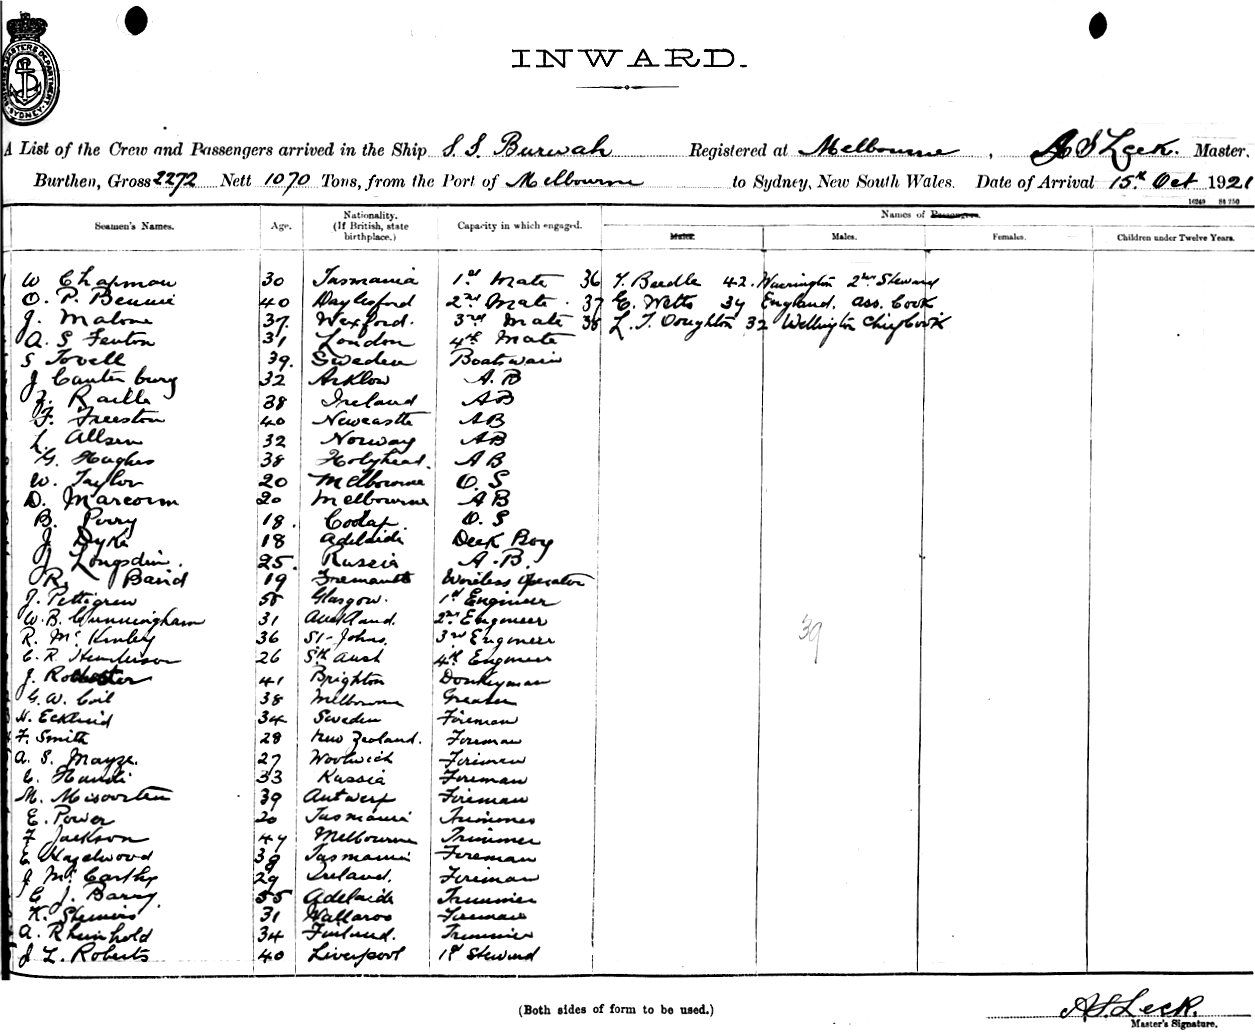 INWARD.
A List of the Crew and Passengers arrived in the Ship S. S. Burwah Registered at Melbourne, A S Leck. Master.
Burthen, Gross 2272 Nett 1070 Tons, from the Port of Melbourne to Sydney, New South Wales. Date of Arrival 15th Oct 1921
Seamen's Names. Age. Nationality. (If British, state birthplace.) Capacity in which engaged. Names of Passengers.
Males. Females. Children under Twelve Years.
W Chapman 30 Tasmania 1st Mate 36 T. Beedle 42. Warrington 2nd Steward
O. P. Bennie 40 Daylesford 2nd Mate. 37 E. Wetts 34 England. Ass. Cook
J. Malone 37. Wexford. 3rd Mate 38 L. T. Doughton 32 Wellington Chief Cook
A. S Fenton 31 London 4th Mate
S Tovell 39. Sweden Boatswain
J Canterbury 32 Arklow A. B
Raille 38 Ireland AB
F. Freeston 40 Newcastle AB
L. Allsen 32 Norway AB
G. Hughes 38 Holyhead. AB
W. Taylor 20 Melbourne O. S
D. Marcorm 20 Melbourne AB
B. Perry 18. O. S
J Dyke 18 Adelaide Deck Boy
J Longsdin. 25. Russia A. B.
R. Baird 19 Fremantle Wireless Operator
J. Pettigrew 58 Glasgow. 1st Engineer
W. B. Cunningham 31 Auckland. 2nd Engineer
R. Mc Kinley 36 St-Johns. 3rd Engineer
C. R. Henderson 26 Sth Aust 4th Engineer
J. 41 Brighton Donkeyman
G. W. Coil 38 Melbourne Greaser
H. Ecklund 34 Sweden Fireman
F. Smith 28 New Zealand. Fireman
A. S. Mayze. 27 Woolwich Fireman
33 Russia Fireman
M. Misoorten 39 Antwerp Fireman
E. Power 20 Tasmania Trimmer
F Jackson 47 Melbourne Trimmer
E Hazelwood 38 Tasmania Fireman
J Mc Carthy 29 Ireland. Fireman
C J. Barry. 55 Adelaide Trimmer
K. 31 Wallaroo Fireman
A. Rheinhold 34 Finland. Trimmer
J L. Roberts 40 Liverpool 1st Steward
39
(Both sides of form to be used.)
A S. Leck.
Master's Signature.